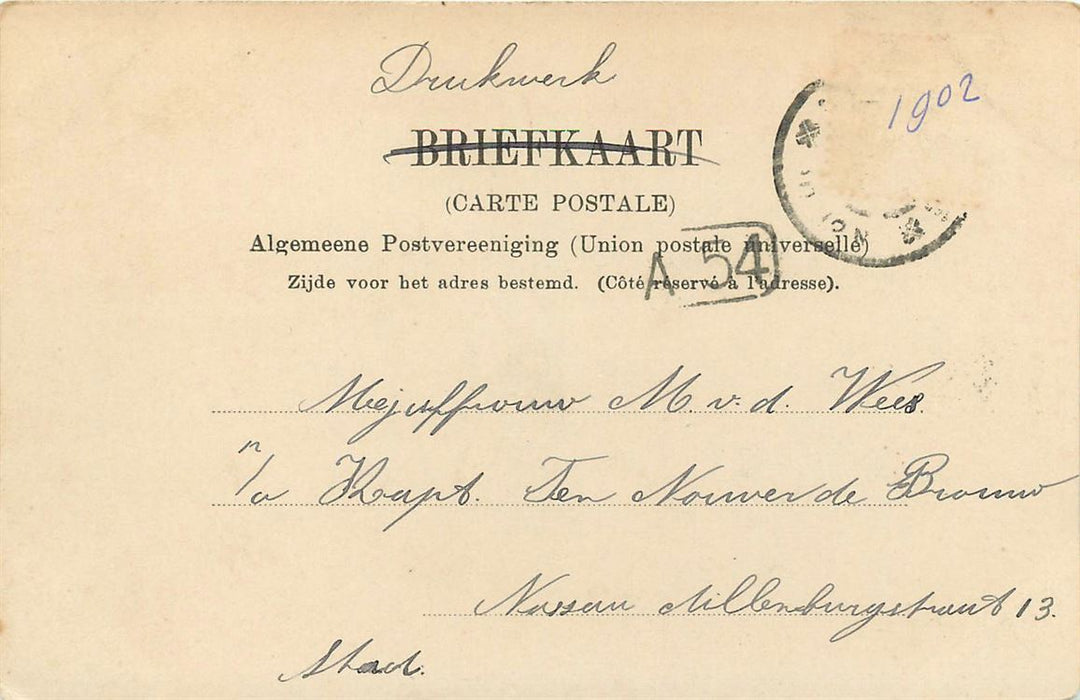 Drukwerk
1902
BRIEFKAART
(CARTE POSTALE)
Algemeene Postvereeniging (Union postale universelle)
Zijde voor het adres bestemd. (Côté réservé à l'adresse).
A 54
Mejuffrouw M. v. d. Wees
Kapt. Ten Nouver de Brouw
Nassau Dillenburgstraat 13.
Stad.